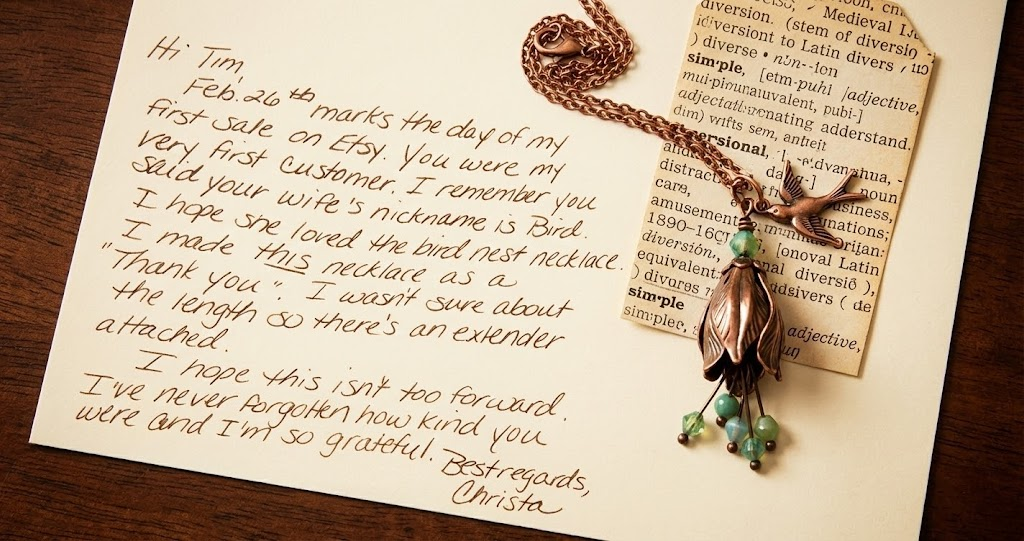 Hi Tim,
Feb. 26th marks the day of my
first sale on Etsy. You were my
very first customer. I remember you
said your wife's nickname is Bird.
I hope she loved the bird nest necklace.
I made this necklace as a
"Thank you". I wasn't sure about
the length so there's an extender
attached.
I hope this isn't too forward.
I've never forgotten how kind you
were and I'm so grateful.
Best regards,
Christa
diversion. (stem of diversio
diversiont to Latin divers
) diverse
simple, [etm-puhl /adjective,
adjectat
nating adderstand.
ersional,
noun
distract
care,
amusement
nations,
1890-16
onoval Latin
diversión,
al diversiō ),
equivalent
dsivers ( de
simple
adjective,